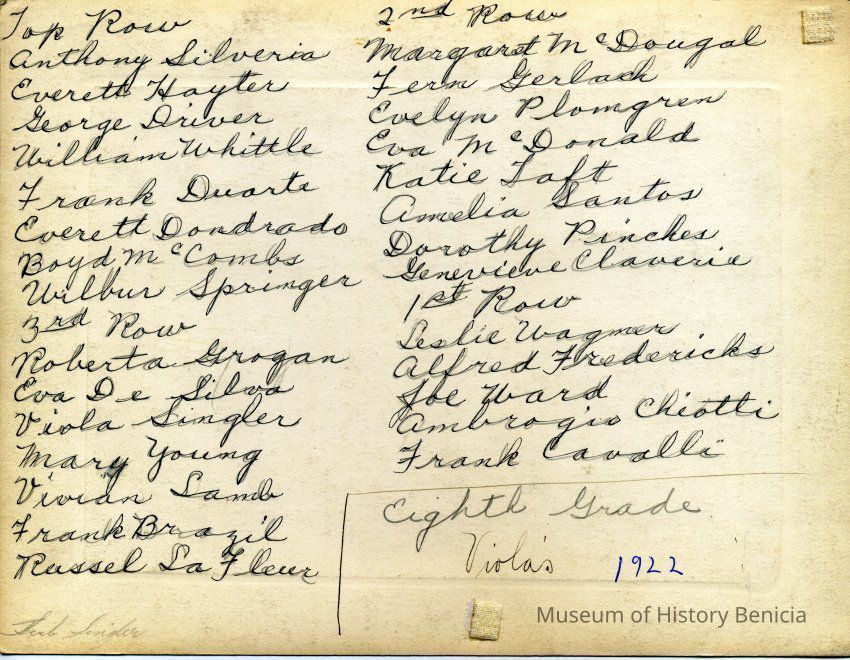 Top Row
Anthony Silveria
Everett Hayter
George Driver
William Whittle
Frank Duarte
Everett Dondrado
Boyd McCombs
Wilbur Springer
3rd Row
Roberta Grogan
Eva De Silva
Viola Singler
Mary Young
Vivian Lamb
Frank Brazil
Russel La Fleur
2nd Row
Margaret McDougal
Fern Gerlach
Evelyn Plomgren
Eva McDonald
Katie Taft
Amelia Santos
Dorothy Pinches
Genevieve Claverie
1st Row
Leslie Wagner
Alfred Fredericks
Joe Ward
Ambrogio Chiotti
Frank Cavalli
Eighth Grade
Viola's 1922
Museum of History Benicia